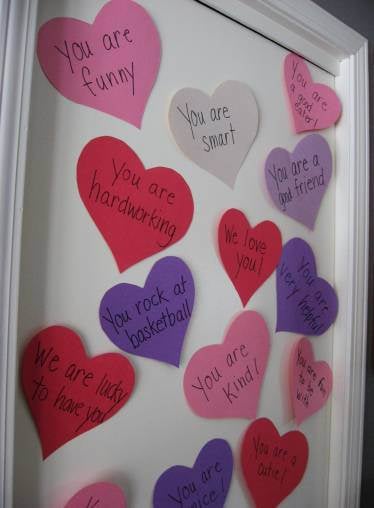 You are
funny
You are
smart
You are
a good
eater!
You are
hardworking
You are a
good friend
We love
you!
You are
very helpful!
You rock at
basketball
We are lucky
to have you
You are
kind!
You are fun
to be
with
You are a
cutie!
You are
nice!